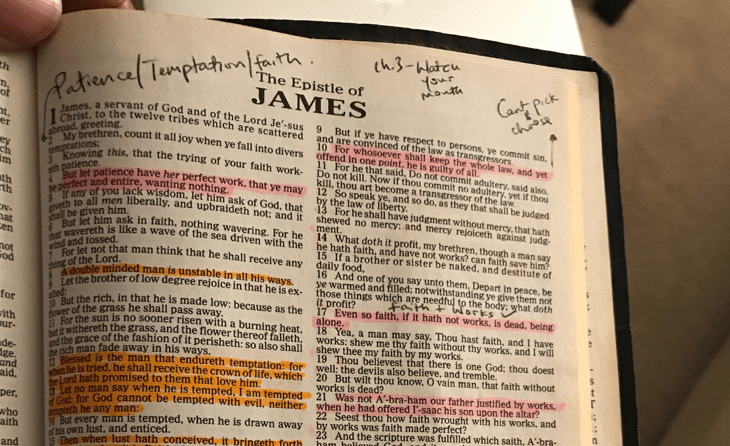 Patience/Temptation/faith.
ch.3-Watch
your
mouth
Cant pick
&
choose
The Epistle of
JAMES
1 James, a servant of God and of the Lord Je'-sus
Christ, to the twelve tribes which are scattered
abroad, greeting.
2 My brethren, count it all joy when ye fall into divers
temptations;
3 Knowing this, that the trying of your faith work-
eth patience.
4 But let patience have her perfect work, that ye may
be perfect and entire, wanting nothing.
5 If any of you lack wisdom, let him ask of God, that
giveth to all men liberally, and upbraideth not; and it
shall be given him.
6 But let him ask in faith, nothing wavering. For he
that wavereth is like a wave of the sea driven with the
wind and tossed.
7 For let not that man think that he shall receive any
thing of the Lord.
8 A double minded man is unstable in all his ways.
9 Let the brother of low degree rejoice in that he is ex-
alted:
10 But the rich, in that he is made low: because as the
flower of the grass he shall pass away.
11 For the sun is no sooner risen with a burning heat,
but it withereth the grass, and the flower thereof falleth,
and the grace of the fashion of it perisheth: so also shall
the rich man fade away in his ways.
12 Blessed is the man that endureth temptation: for
when he is tried, he shall receive the crown of life, which
the Lord hath promised to them that love him.
13 Let no man say when he is tempted, I am tempted
of God: for God cannot be tempted with evil, neither
tempteth he any man:
14 But every man is tempted, when he is drawn away
of his own lust, and enticed.
15 Then when lust hath conceived, it bringeth forth
9 But if ye have respect to persons, ye commit sin,
and are convinced of the law as transgressors.
10 For whosoever shall keep the whole law, and yet
offend in one point, he is guilty of all.
11 For he that said, Do not commit adultery, said also,
Do not kill. Now if thou commit no adultery, yet if thou
kill, thou art become a transgressor of the law.
12 So speak ye, and so do, as they that shall be judged
by the law of liberty.
13 For he shall have judgment without mercy, that hath
shewed no mercy; and mercy rejoiceth against judg-
ment.
14 What doth it profit, my brethren, though a man say
he hath faith, and have not works? can faith save him?
15 If a brother or sister be naked, and destitute of
daily food,
16 And one of you say unto them, Depart in peace, be
ye warmed and filled; notwithstanding ye give them not
those things which are needful to the body; what doth
it profit?
faith + Works
17 Even so faith, if it hath not works, is dead, being
alone.
18 Yea, a man may say, Thou hast faith, and I have
works: shew me thy faith without thy works, and I will
shew thee my faith by my works.
19 Thou believest that there is one God; thou doest
well: the devils also believe, and tremble.
20 But wilt thou know, O vain man, that faith without
works is dead?
21 Was not A'-bra-ham our father justified by works,
when he had offered I'-saac his son upon the altar?
22 Seest thou how faith wrought with his works, and
by works was faith made perfect?
23 And the scripture was fulfilled which saith, A'-bra-